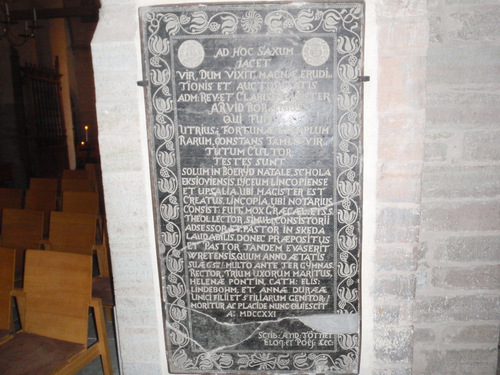 AD HOC SAXUM
JACET
VIR, DUM VIXIT, MAGNÆ ERUDI-
TIONIS ET AUCTORITATIS
ADM: REV: ET CLARISS: MAGISTER
ARVID
QUI FUIT
UTRIUS: FORTUNÆ EXEMPLUM
RARUM, CONSTANS TAMEN VIR-
TUTUM CULTOR.
TESTES SUNT
SOLUM IN BOERYD NATALE, SCHOLA
EKSIOVIENSIS, LYCEUM LINCOPENSE
ET UPSALIA UBI MAGISTER EST
CREATUS, LINCOPIA, UBI NOTARIUS
CONSIST: FUIT, MOX GRÆCÆ, ET S.S.
THEOL: LECTOR, SIMUL CONSISTORII
ADSESSOR ET PASTOR IN SKEDA
LAUDABILIS, DONEC PRÆPOSITUS
ET PASTOR TANDEM EVASERIT
WRETENSIS, QUUM ANNO ÆTATIS
SUÆ MULTO ANTE TER GYMNAS:
RECTOR, TRIUM UXORUM MARITUS,
HELENÆ PONTIN, CATH: ELIS:
LINDEBOHM, ET ANNÆ DURÆÆ
UNICI FILII ET 5 FILIARUM GENITOR,
MORITUR AC PLACIDE NUNC QUIESCIT
A: MDCCXXI
SCRIB:
ELOQ: ET POËS: LEC: